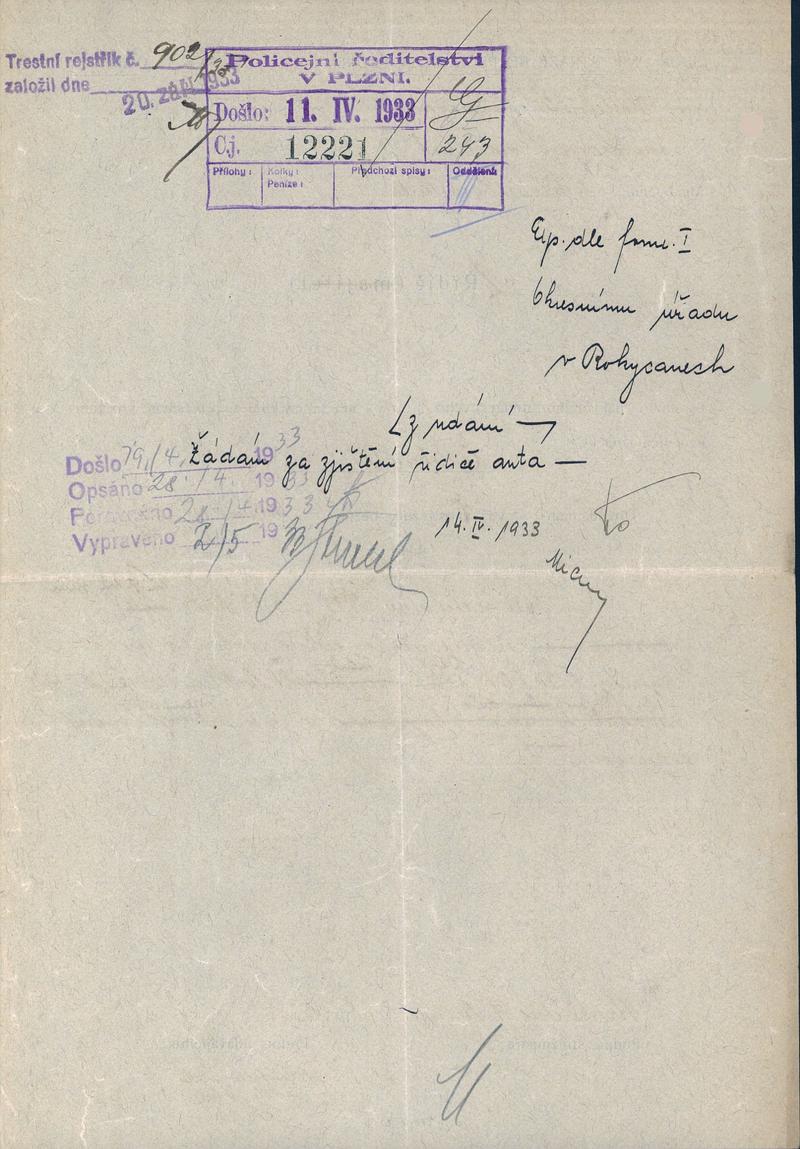 Trestní rejstřík č. 902
založil dne
20. ZÁŘ. 1933
Policejní ředitelství
V PLZNI.
Došlo: 11. IV. 1933
Cj. 12221
243
Přílohy:
Kolky:
Peníze:
Předchozí spisy:
Oddělení:
Exp. dle form. I
Okresnímu úřadu
v Rokycanech
z udání
Žádám za zjištění řidiče auta —
Došlo 19./4. 1933
Opsáno 28./4. 1933
Porovnáno 28./4. 1933
Vypraveno 2/5 19
14. IV. 1933